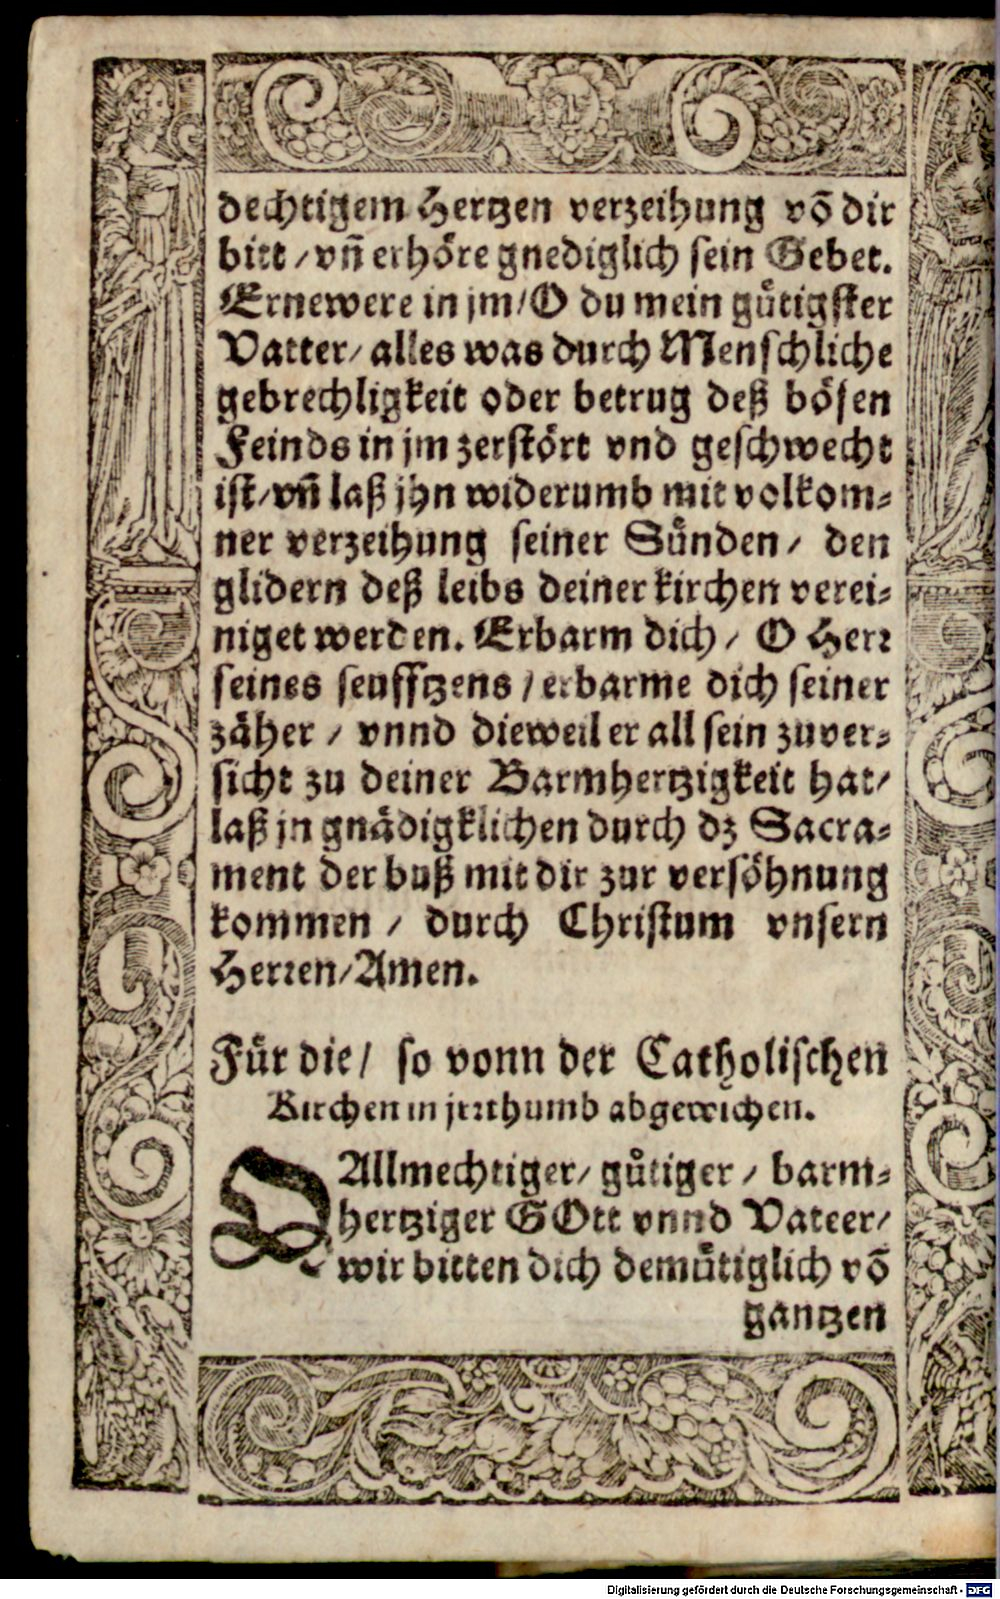 dechtigem Hertzen verzeihung võ dir
bitt / vñ erhöre gnediglich sein Gebet.
Ernewere in jm / O du mein gütigster
Vatter / alles was durch Menschliche
gebrechligkeit oder betrug deß bösen
Feinds in jm zerstört vnd geschwecht
ist / vñ laß jhn widerumb mit volkom-
ner verzeihung seiner Sünden / den
glidern deß leibs deiner kirchen verei-
niget werden. Erbarm dich / O Herr
seines seufftzens / erbarme dich seiner
zäher / vnnd dieweil er all sein zuver-
sicht zu deiner Barmhertzigkeit hat /
laß jn gnädigklichen durch dz Sacra-
ment der buß mit dir zur versöhnung
kommen / durch Christum vnsern
Herren / Amen.
Für die / so vonn der Catholischen
Kirchen in jrrthumb abgewichen.
O Allmechtiger / gütiger / barm-
hertziger GOtt vnnd Vateer /
wir bitten dich demütiglich võ
gantzen
Digitalisierung gefördert durch die Deutsche Forschungsgemeinschaft - DFG